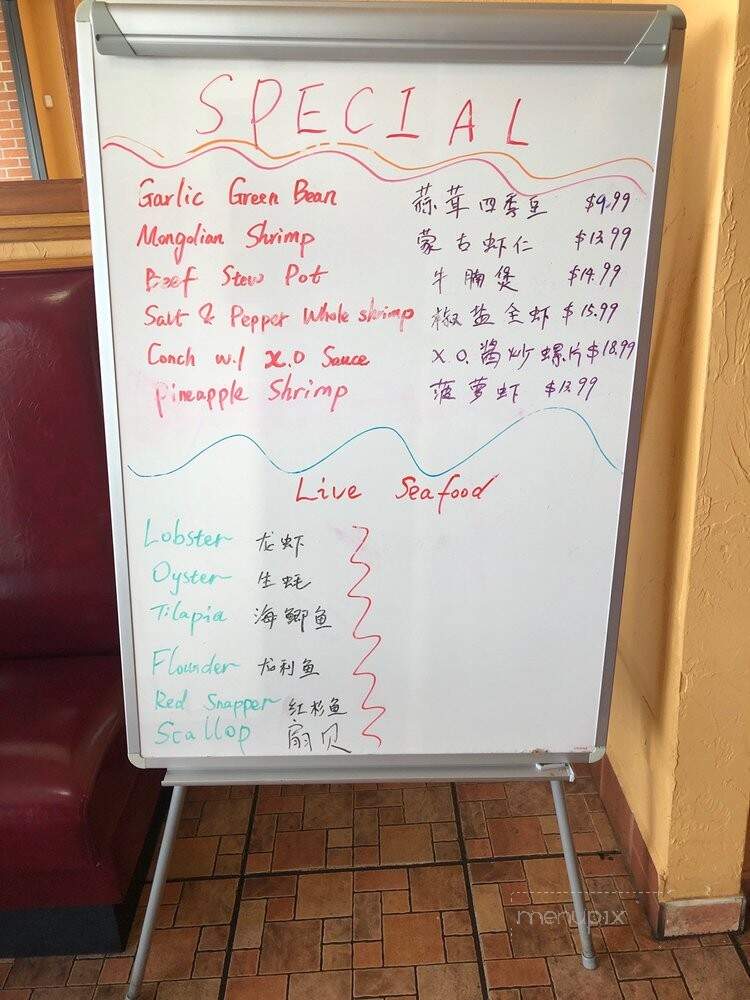 SPECIAL
Garlic Green Bean 蒜茸四季豆 $9.99
Mongolian Shrimp 蒙古虾仁 $13.99
Beef Stew Pot 牛腩煲 $14.99
Salt & Pepper Whole shrimp 椒盐全虾 $15.99
Conch w./ X.O Sauce X.O.酱炒螺片 $18.99
Pineapple Shrimp 菠萝虾 $13.99
Live Seafood
Lobster 龙虾
Oyster 生蚝
Tilapia 海鲫鱼
Flounder 龙利鱼
Red Snapper 红杉鱼
Scallop 扇贝
menupix